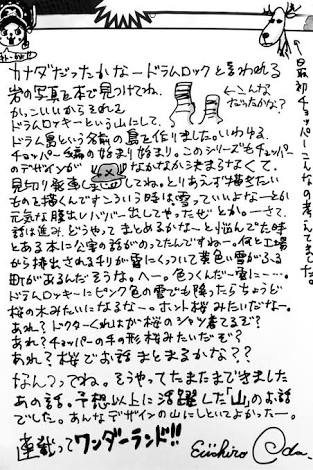 カナダだったかなードラムロックと言われる
岩の写真を本で見つけてね、
かっこいいからそれを
ドラムロッキーという山にして、
ドラム島という名前の島を作りました。いわゆる、
チョッパー編の始まり始まり。このシリーズもチョッパー
のデザインがなかなか決まらなくて、
見切り発進してね。とりあえず描きたい
ものを描くんですこういう時は雪っていいよなーとか
元気な腹出しババー出してやったぜとか。ーさて、
話は進み、どうやってまとめるかなーと悩んでた時
とある本に公害の話がのってたんですねー。何と工場
から排出されるチリが雪にくっついて黄色い雪がふる
町があるんだそうな。へー。色つくんだ…雪に……。
ドラムロッキーにピンク色の雪でも降ったらちょうど
桜の木みたいになるなー。ホント桜みたいだなー。
あれ?ドクターくれはが桜のシャツ着てるぞ?
あれ?チョッパーの手の形桜みたいだぞ?
あれ?桜でお話まとまるかな??
なんつってね。そうやってたまたまできました
あの話。予想以上に活躍した「山」のお話
でした。あんなデザインの山にしといてよかったー。
連載ってワンダーランド!!
Eiichiro Oda
←こんな
だったかな?
↑最初チョッパーこんなの考えてました。